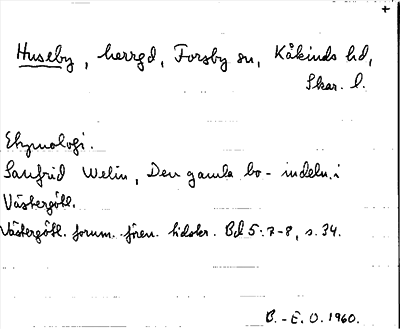 +
Huseby, herrgd, Forsby sn, Kåkinds hd,
Skar. l.
Etymologi.
Sanfrid Welin, Den gamla bo-indeln. i
Västergötl.
Västergötl. fornm. fören. tidskr. Bd 5:7-8, s. 34.
B.-E. O. 1960.